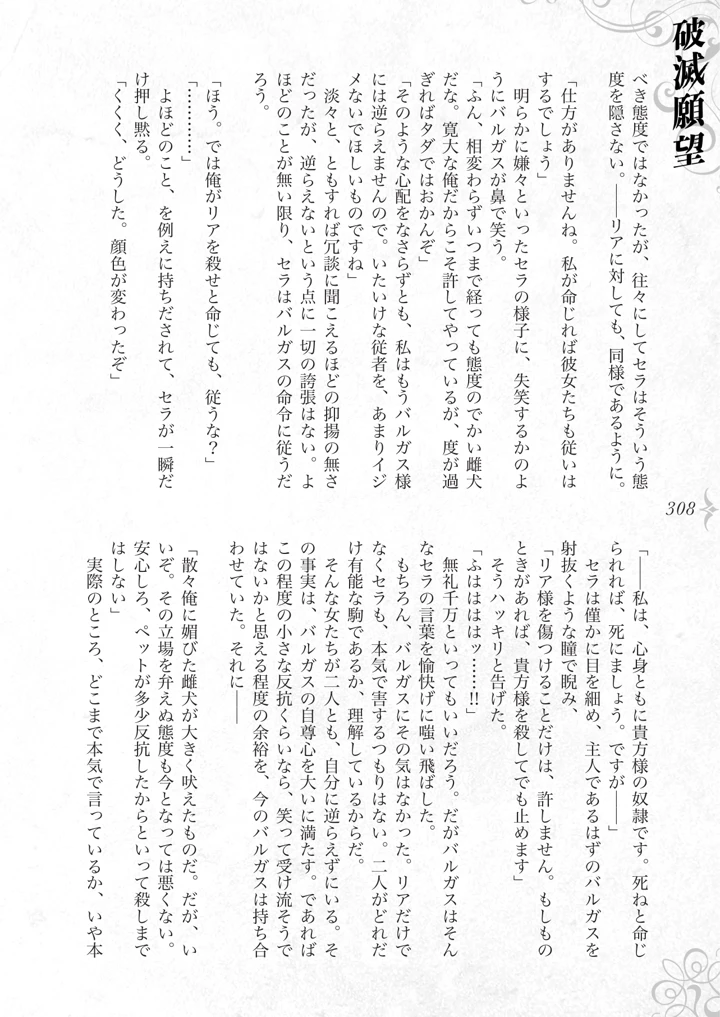 破滅願望
べき態度ではなかったが、往々にしてセラはそういう態
度を隠さない。――リアに対しても、同様であるように。
「仕方がありませんね。私が命じれば彼女たちも従いは
するでしょう」
明らかに嫌々といったセラの様子に、失笑するかのよ
うにバルガスが鼻で笑う。
「ふん、相変わらずいつまで経っても態度のでかい雌犬
だな。寛大な俺だからこそ許してやっているが、度が過
ぎればタダではおかんぞ」
「そのような心配をなさらずとも、私はもうバルガス様
には逆らえませんので。いたいけな従者を、あまりイジ
メないでほしいものですね」
淡々と、ともすれば冗談に聞こえるほどの抑揚の無さ
だったが、逆らえないという点に一切の誇張はない。よ
ほどのことが無い限り、セラはバルガスの命令に従うだ
ろう。
「ほう。では俺がリアを殺せと命じても、従うな？」
「…………」
よほどのこと、を例えに持ちだされて、セラが一瞬だ
け押し黙る。
「くくく、どうした。顔色が変わったぞ」
308
「――私は、心身ともに貴方様の奴隷です。死ねと命じ
られれば、死にましょう。ですが――」
セラは僅かに目を細め、主人であるはずのバルガスを
射抜くような瞳で睨み、
「リア様を傷つけることだけは、許しません。もしもの
ときがあれば、貴方様を殺してでも止めます」
そうハッキリと告げた。
「ふはははははッ……!!」
無礼千万といってもいいだろう。だがバルガスはそん
なセラの言葉を愉快げに嗤い飛ばした。
もちろん、バルガスにその気はなかった。リアだけで
なくセラも、本気で害するつもりはない。二人がどれだ
け有能な駒であるか、理解しているからだ。
そんな女たちが二人とも、自分に逆らえずにいる。そ
の事実は、バルガスの自尊心を大いに満たす。であれば
この程度の小さな反抗くらいなら、笑って受け流そうで
はないかと思える程度の余裕を、今のバルガスは持ち合
わせていた。それに――
「散々俺に媚びた雌犬が大きく吠えたものだ。だが、い
いぞ。その立場を弁えぬ態度も今となっては悪くない。
安心しろ、ペットが多少反抗したからといって殺しまで
はしない」
実際のところ、どこまで本気で言っているか、いや本